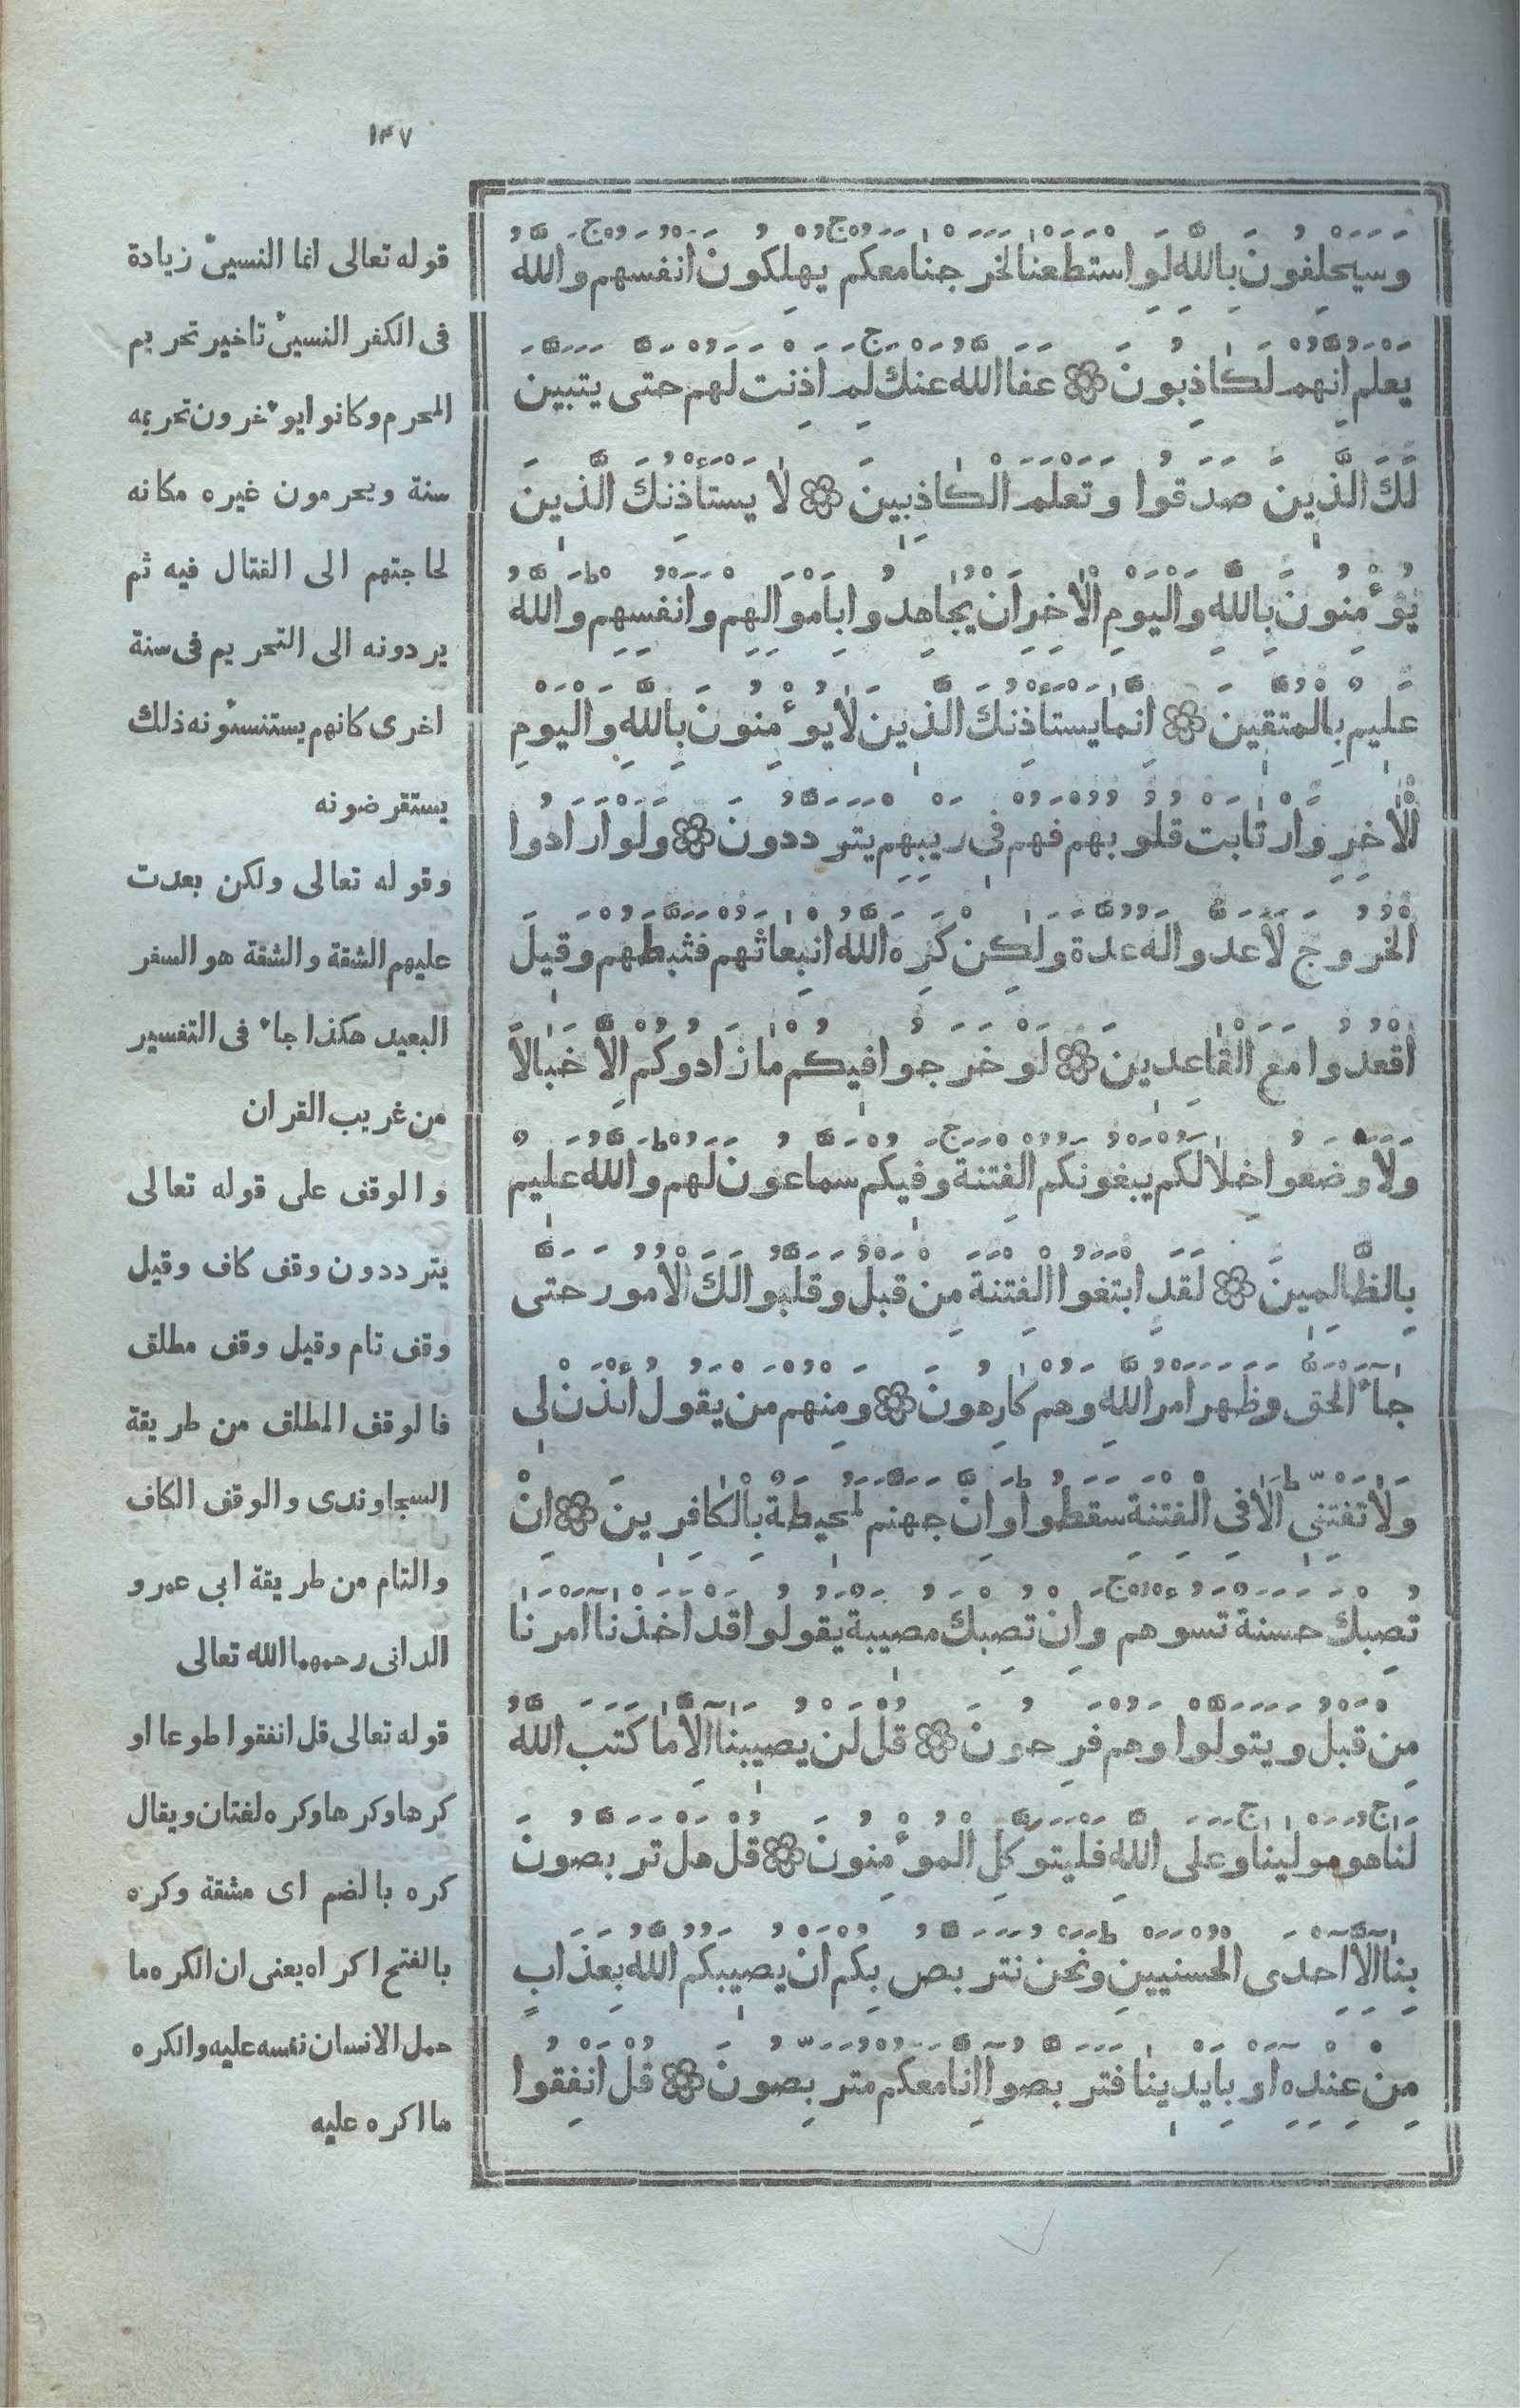 ١٤٧
وَسَيَحْلِفُونَ بِاللَّهِ لَوِ اسْتَطَعْنَا لَخَرَجْنَا مَعَكُمْ ج يُهْلِكُونَ اَنْفُسَهُمْ ج وَاللَّهُ
يَعْلَمُ اِنَّهُمْ لَكَاذِبُونَ ۞ عَفَا اللَّهُ عَنْكَ ج لِمَ اَذِنْتَ لَهُمْ حَتَّى يَتَبَيَّنَ
لَكَ الَّذِينَ صَدَقُوا وَتَعْلَمَ الْكَاذِبِينَ ۞ لَا يَسْتَأْذِنُكَ الَّذِينَ
يُوءْمِنُونَ بِاللَّهِ وَالْيَوْمِ الْاٰخِرِ اَنْ يُجَاهِدُوا بِاَمْوَالِهِمْ وَاَنْفُسِهِمْ ط وَاللَّهُ
عَلِيمٌ بِالْمُتَّقِينَ ۞ اِنَّمَا يَسْتَأْذِنُكَ الَّذِينَ لَا يُوءْمِنُونَ بِاللَّهِ وَالْيَوْمِ
الْاٰخِرِ وَارْتَابَتْ قُلُوبُهُمْ فَهُمْ فِي رَيْبِهِمْ يَتَرَدَّدُونَ ۞ وَلَوْ اَرَادُوا
الْخُرُوجَ لَاَعَدُّوا لَهُ عُدَّةً وَلَكِنْ كَرِهَ اللَّهُ انْبِعَاثَهُمْ فَثَبَّطَهُمْ وَقِيلَ
اقْعُدُوا مَعَ الْقَاعِدِينَ ۞ لَوْ خَرَجُوا فِيكُمْ مَا زَادُوكُمْ اِلَّا خَبَالًا
وَلَاَوْضَعُوا خِلَالَكُمْ يَبْغُونَكُمُ الْفِتْنَةَ ج وَفِيكُمْ سَمَّاعُونَ لَهُمْ ط وَاللَّهُ عَلِيمٌ
بِالظَّالِمِينَ ۞ لَقَدِ ابْتَغَوُا الْفِتْنَةَ مِنْ قَبْلُ وَقَلَّبُوا لَكَ الْاُمُورَ حَتَّى
جَاءَ الْحَقُّ وَظَهَرَ اَمْرُ اللَّهِ وَهُمْ كَارِهُونَ ۞ وَمِنْهُمْ مَنْ يَقُولُ ائْذَنْ لِي
وَلَا تَفْتِنِّي ط اَلَا فِي الْفِتْنَةِ سَقَطُوا ط وَاِنَّ جَهَنَّمَ لَمُحِيطَةٌ بِالْكَافِرِينَ ۞ اِنْ
تُصِبْكَ حَسَنَةٌ تَسُوءْهُمْ ج وَاِنْ تُصِبْكَ مُصِيبَةٌ يَقُولُوا قَدْ اَخَذْنَا اَمْرَنَا
مِنْ قَبْلُ وَيَتَوَلَّوْا وَهُمْ فَرِحُونَ ۞ قُلْ لَنْ يُصِيبَنَا اِلَّا مَا كَتَبَ اللَّهُ
لَنَا ج هُوَ مَوْلَينَا ج وَعَلَى اللَّهِ فَلْيَتَوَكَّلِ الْمُوءْمِنُونَ ۞ قُلْ هَلْ تَرَبَّصُونَ
بِنَا اِلَّا اِحْدَى الْحُسْنَيَيْنِ ط وَنَحْنُ نَتَرَبَّصُ بِكُمْ اَنْ يُصِيبَكُمُ اللَّهُ بِعَذَابٍ
مِنْ عِنْدِهِ اَوْ بِاَيْدِينَا فَتَرَبَّصُوا اِنَّا مَعَكُمْ مُتَرَبِّصُونَ ۞ قُلْ اَنْفِقُوا
قوله تعالى انما النسىء زيادة
فى الكفر النسىء تاخير تحريم
المحرم وكانوا يوءخرون تحريمه
سنة ويحرمون غيره مكانه
لحاجتهم الى القتال فيه ثم
يردونه الى التحريم فى سنة
اخرى كانهم يستنسئونه ذلك
يستقرضونه
وقوله تعالى ولكن بعدت
عليهم الشقة والشقة هو السفر
البعيد هكذا جاء فى التفسير
من غريب القران
والوقف على قوله تعالى
يترددون وقف كاف وقيل
وقف تام وقيل وقف مطلق
فالوقف المطلق من طريقة
السجاوندى والوقف الكاف
والتام من طريقة ابى عمرو
الدانى رحمهما الله تعالى
قوله تعالى قل انفقوا طوعا او
كرها وكرها وكره لغتان ويقال
كره بالضم اى مشقة وكره
بالفتح اكراه يعنى ان الكره ما
حمل الانسان نفسه عليه والكره
ما اكره عليه